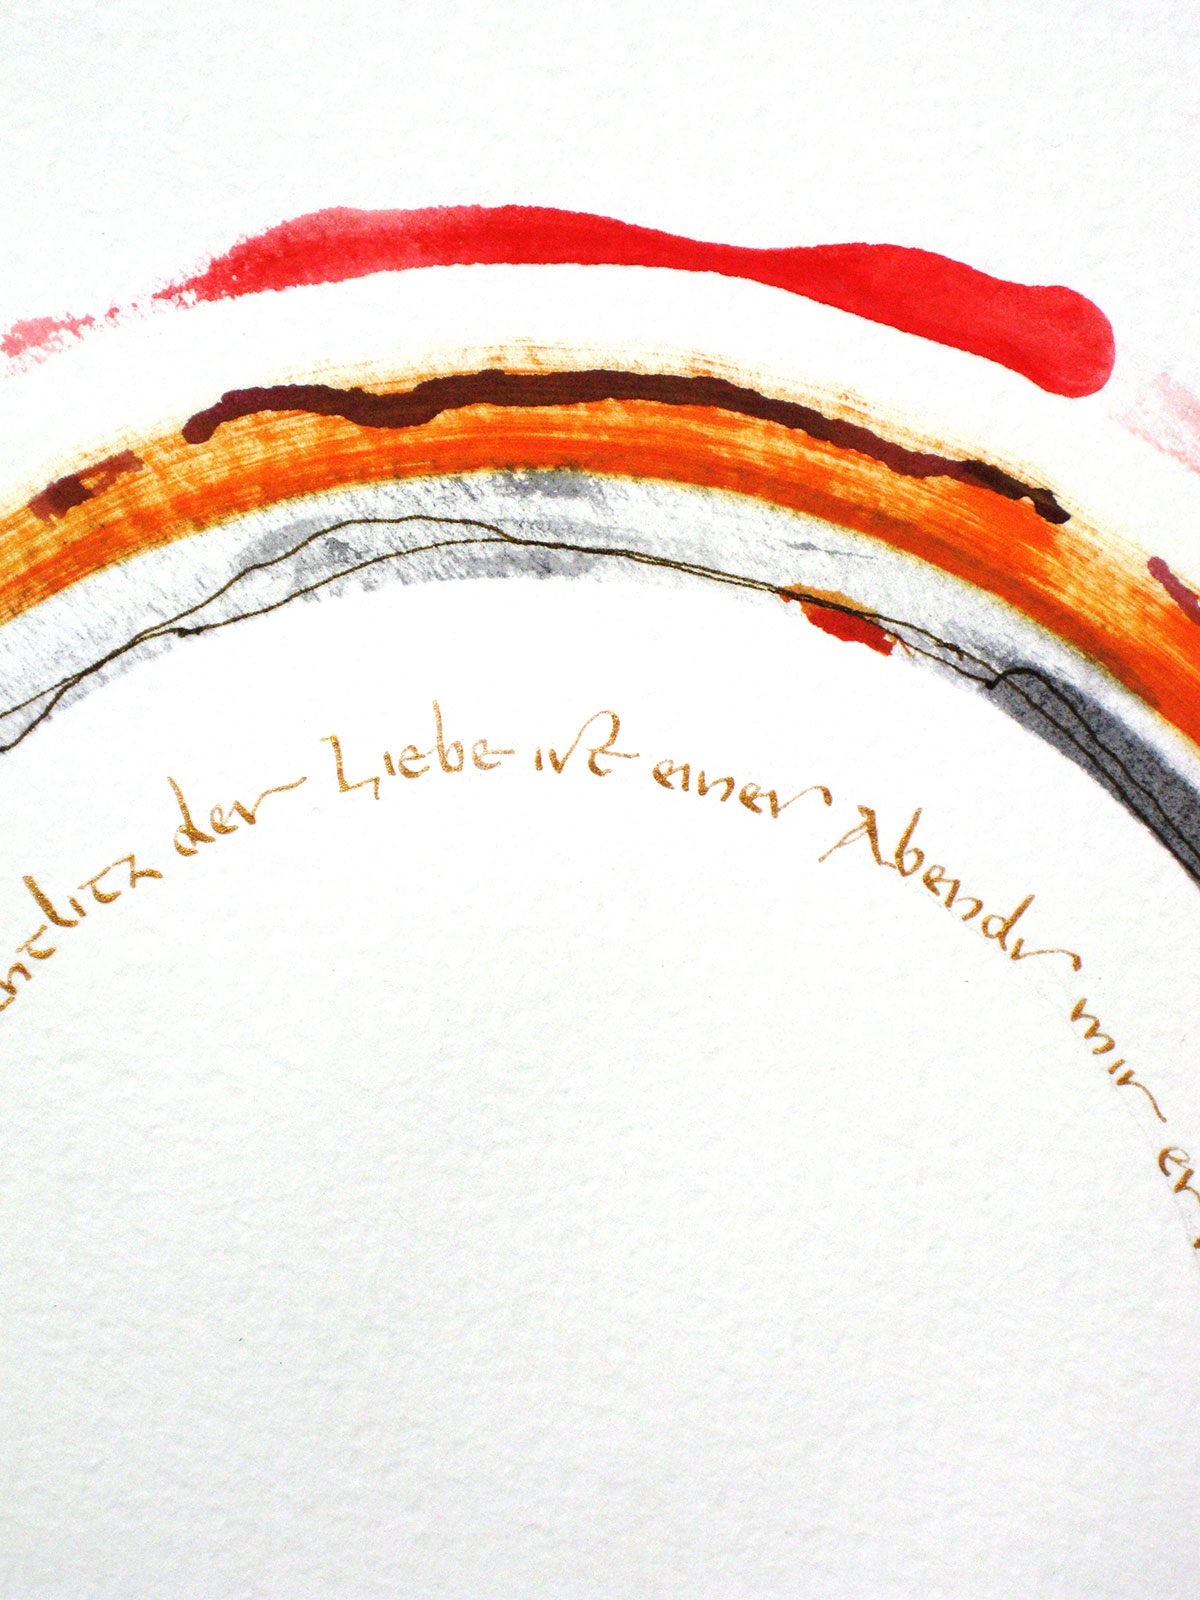 ntlitz der Liebe ist einer Abends mir er